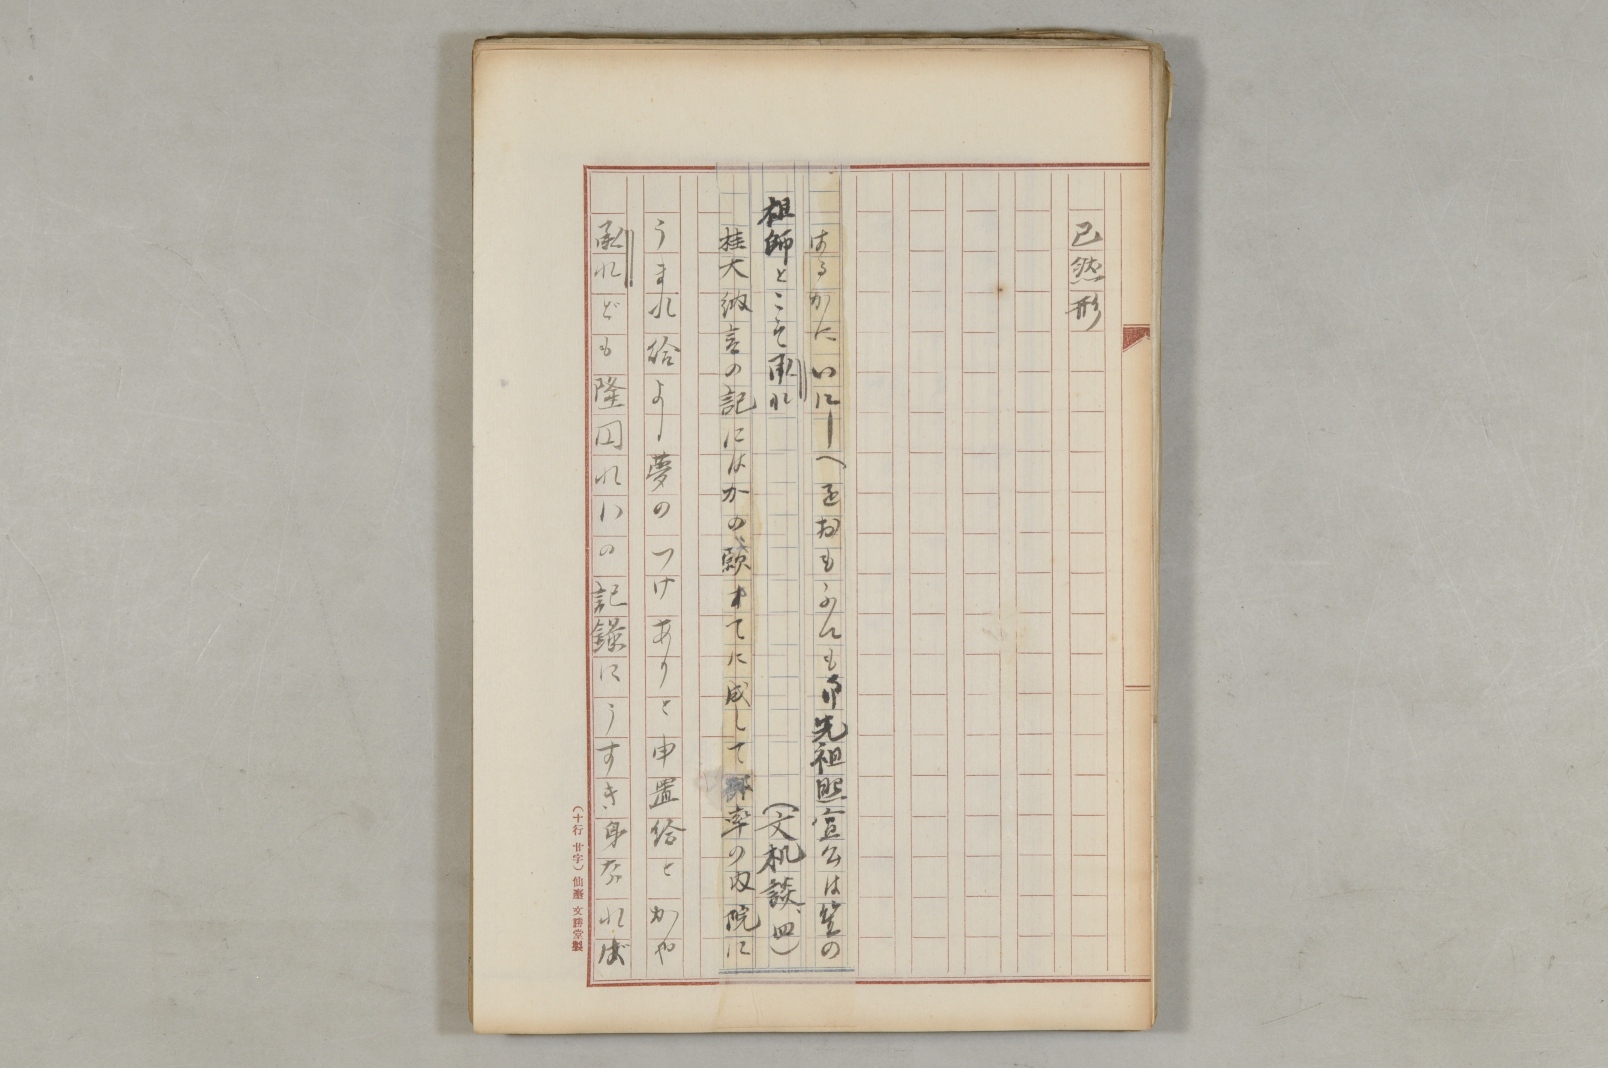 已然形
はるかにいにしへをおもふにも御先祖照宣公は箏の
祖師とこそ承れ
（文机談、四）
桂大納言の記にはかの願すてに成して都率の内院に
うまれ給よし夢のつけありと申置給とかや
承れども隆円れいの記録にうすき身なれば
（十行 廿字）仙臺 文勝堂製